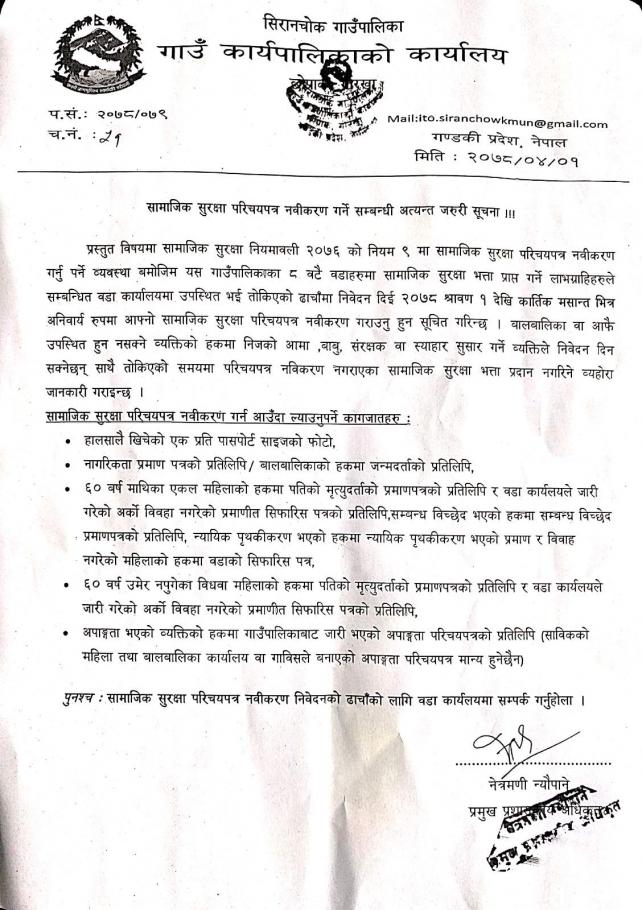 सिरानचोक गाउँपालिका
गाउँ कार्यपालिकाको कार्यालय
प.सं.: २०७८/०७९
च.नं. : २१
Mail:ito.siranchowkmun@gmail.com
गण्डकी प्रदेश, नेपाल
मिति : २०७८/०४/०१
सामाजिक सुरक्षा परिचयपत्र नवीकरण गर्ने सम्बन्धी अत्यन्त जरुरी सूचना !!!
प्रस्तुत विषयमा सामाजिक सुरक्षा नियमावली २०७६ को नियम ९ मा सामाजिक सुरक्षा परिचयपत्र नवीकरण
गर्नु पर्ने व्यवस्था बमोजिम यस गाउँपालिकाका ८ वटै वडाहरुमा सामाजिक सुरक्षा भत्ता प्राप्त गर्ने लाभग्राहिहरुले
सम्बन्धित वडा कार्यालयमा उपस्थित भई तोकिएको ढाचाँमा निवेदन दिई २०७८ श्रावण १ देखि कार्तिक मसान्त भित्र
अनिवार्य रुपमा आफ्नो सामाजिक सुरक्षा परिचयपत्र नवीकरण गराउनु हुन सूचित गरिन्छ । बालबालिका वा आफै
उपस्थित हुन नसक्ने व्यक्तिको हकमा निजको आमा ,बाबु, संरक्षक वा स्याहार सुसार गर्ने व्यक्तिले निवेदन दिन
सक्नेछन् साथै तोकिएको समयमा परिचयपत्र नविकरण नगराएका सामाजिक सुरक्षा भत्ता प्रदान नगरिने व्यहोरा
जानकारी गराइन्छ ।
सामाजिक सुरक्षा परिचयपत्र नवीकरण गर्न आउँदा ल्याउनुपर्ने कागजातहरु :
• हालसालै खिचेको एक प्रति पासपोर्ट साइजको फोटो,
• नागरिकता प्रमाण पत्रको प्रतिलिपि/ बालबालिकाको हकमा जन्मदर्ताको प्रतिलिपि,
• ६० बर्ष माथिका एकल महिलाको हकमा पतिको मृत्युदर्ताको प्रमाणपत्रको प्रतिलिपि र वडा कार्यलयले जारी
गरेको अर्को विवहा नगरेको प्रमाणीत सिफारिस पत्रको प्रतिलिपि,सम्बन्ध विच्छेद भएको हकमा सम्बन्ध विच्छेद
प्रमाणपत्रको प्रतिलिपि, न्यायिक पृथकीकरण भएको हकमा न्यायिक पृथकीकरण भएको प्रमाण र विवाह
नगरेको महिलाको हकमा वडाको सिफारिस पत्र,
• ६० वर्ष उमेर नपुगेका विधवा महिलाको हकमा पतिको मृत्युदर्ताको प्रमाणपत्रको प्रतिलिपि र वडा कार्यलयले
जारी गरेको अर्को विवहा नगरेको प्रमाणीत सिफारिस पत्रको प्रतिलिपि,
• अपाङ्गता भएको व्यक्तिको हकमा गाउँपालिकाबाट जारी भएको अपाङ्गता परिचयपत्रको प्रतिलिपि (साविकको
महिला तथा बालबालिका कार्यालय वा गाविसले बनाएको अपाङ्गता परिचयपत्र मान्य हुनेछैन)
पुनश्च : सामाजिक सुरक्षा परिचयपत्र नवीकरण निवेदनको ढाचाँको लागि वडा कार्यलयमा सम्पर्क गर्नुहोला ।
नेत्रमणी न्यौपाने
प्रमुख प्रशासकीय अधिकृत